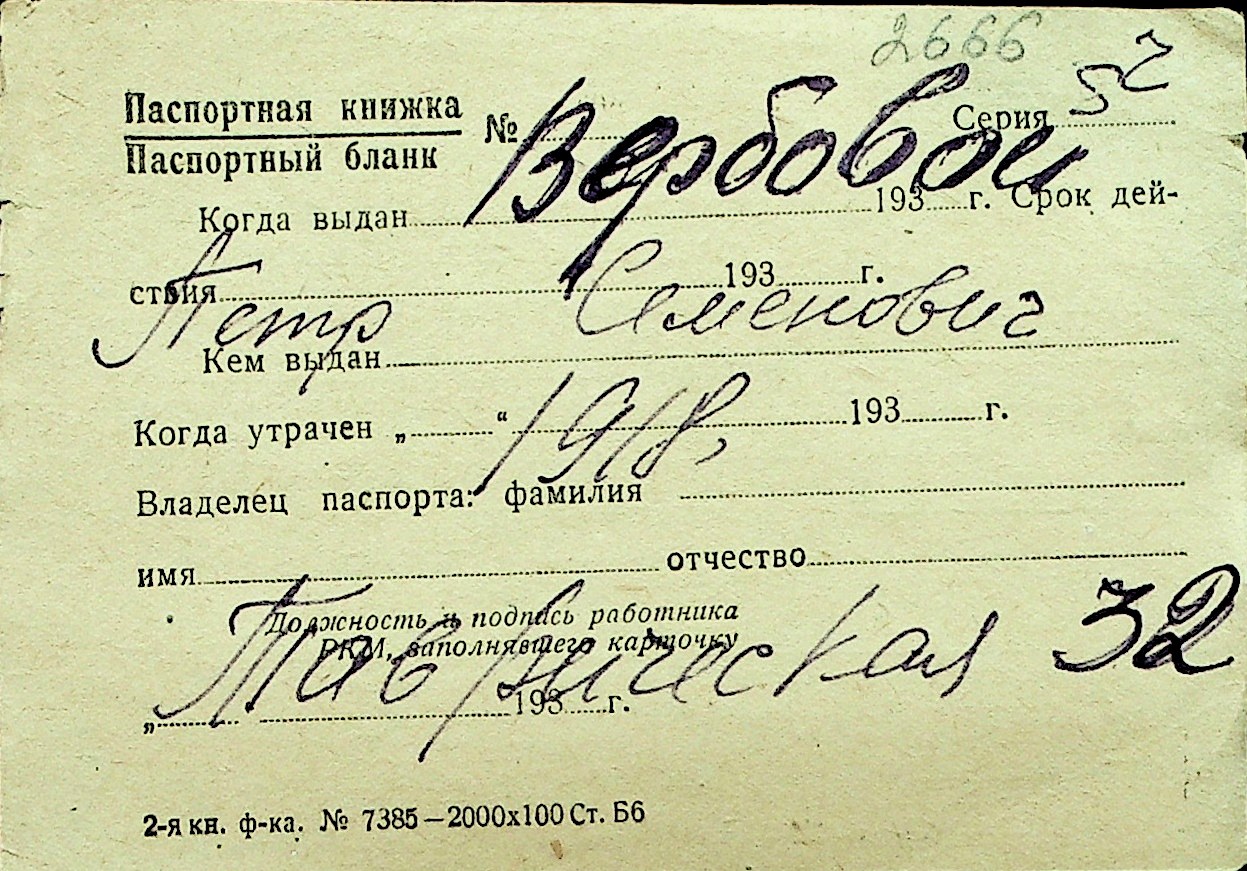 2666
Паспортная книжка № Серия 52
Паспортный бланк
Вербовой
Когда выдан 193 г. Срок дей-
ствия 193 г.
Петр Семенович
Кем выдан
Когда утрачен „ “ 193 г.
1918,
Владелец паспорта: фамилия
имя отчество
Должность и подпись работника
РКМ, заполнявшего карточку
Таврическая 32
„ 193 г.
2-я кн. ф-ка. № 7385—2000х100 Ст. Б6